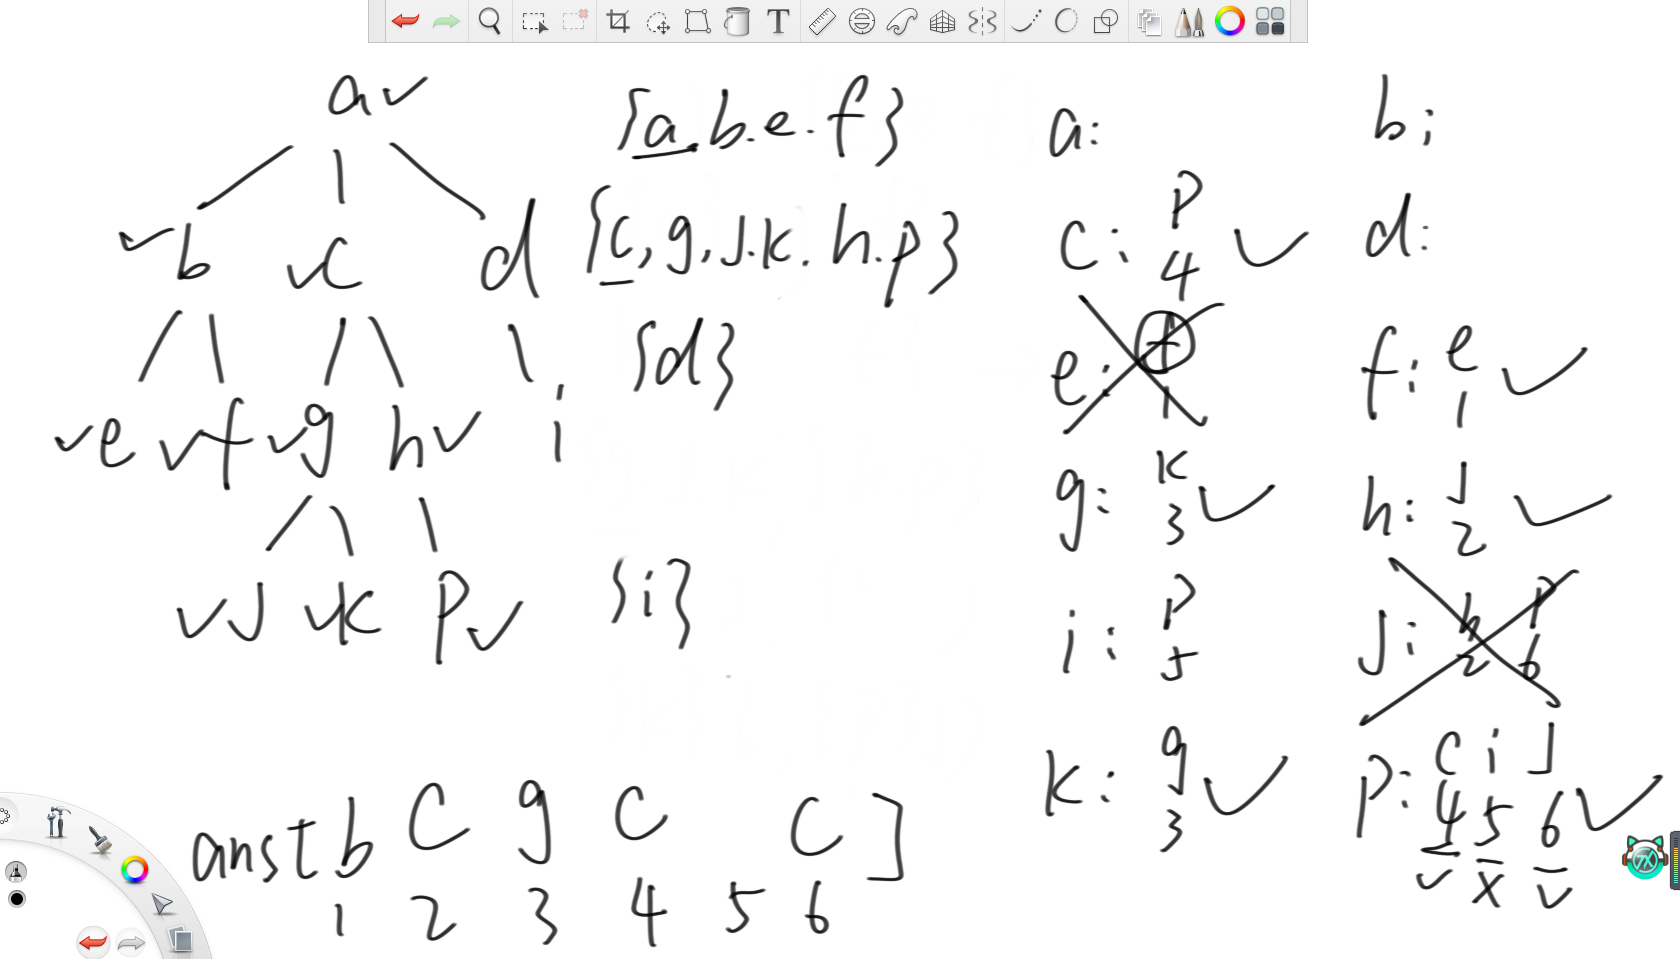 a
{a.b.e.f}
a:
b;
b c d
{c,g,J.k.h.p}
c: p
4
d:
{d}
e: f
1
f: e
1
e f g h i
g: k
3
h: J
2
J k p
{i}
i: p
5
J: h p
2 6
k: g
3
p: c i J
4 5 6
ans[ b c g c c ]
1 2 3 4 5 6
T